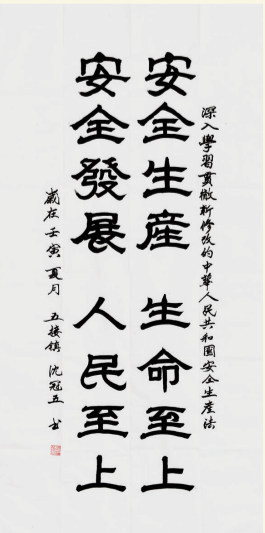 深入學習貫徹新修改的中華人民共和國安全生産法
安全生産 生命至上
安全發展 人民至上
歲在壬寅夏月 五接鎮 沈冠五 书